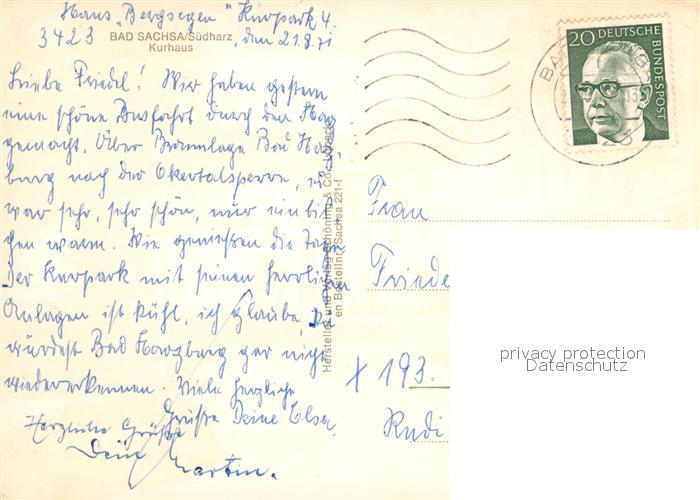 Haus „Bergsegen" Kurpark 4.
3423
BAD SACHSA/Südharz
Kurhaus
den 21.8.71
Liebe Friedel! Wir haben gestern
eine schöne Busfahrt durch den Harz
gemacht. Über Braunlage Bad Harz-
burg nach der Okertalsperre, es
war sehr, sehr schön, nur ein bis-
chen warm. Wir genießen die Tage
Der Kurpark mit seinen herrlichen
Anlagen ist kühl, ich glaube, Du
würdest Bad Harzburg gar nicht
wiedererkennen. Viele herzliche
Grüße Deine Elsa.
Herzliche Grüße
Dein Martin.
Hersteller und Verlag Schöning & Co., Lübeck
Bad Sachsa 221-f
20 DEUTSCHE
BUNDESPOST
Frau
Friede
X 193.
Rudi
privacy protection
Datenschutz